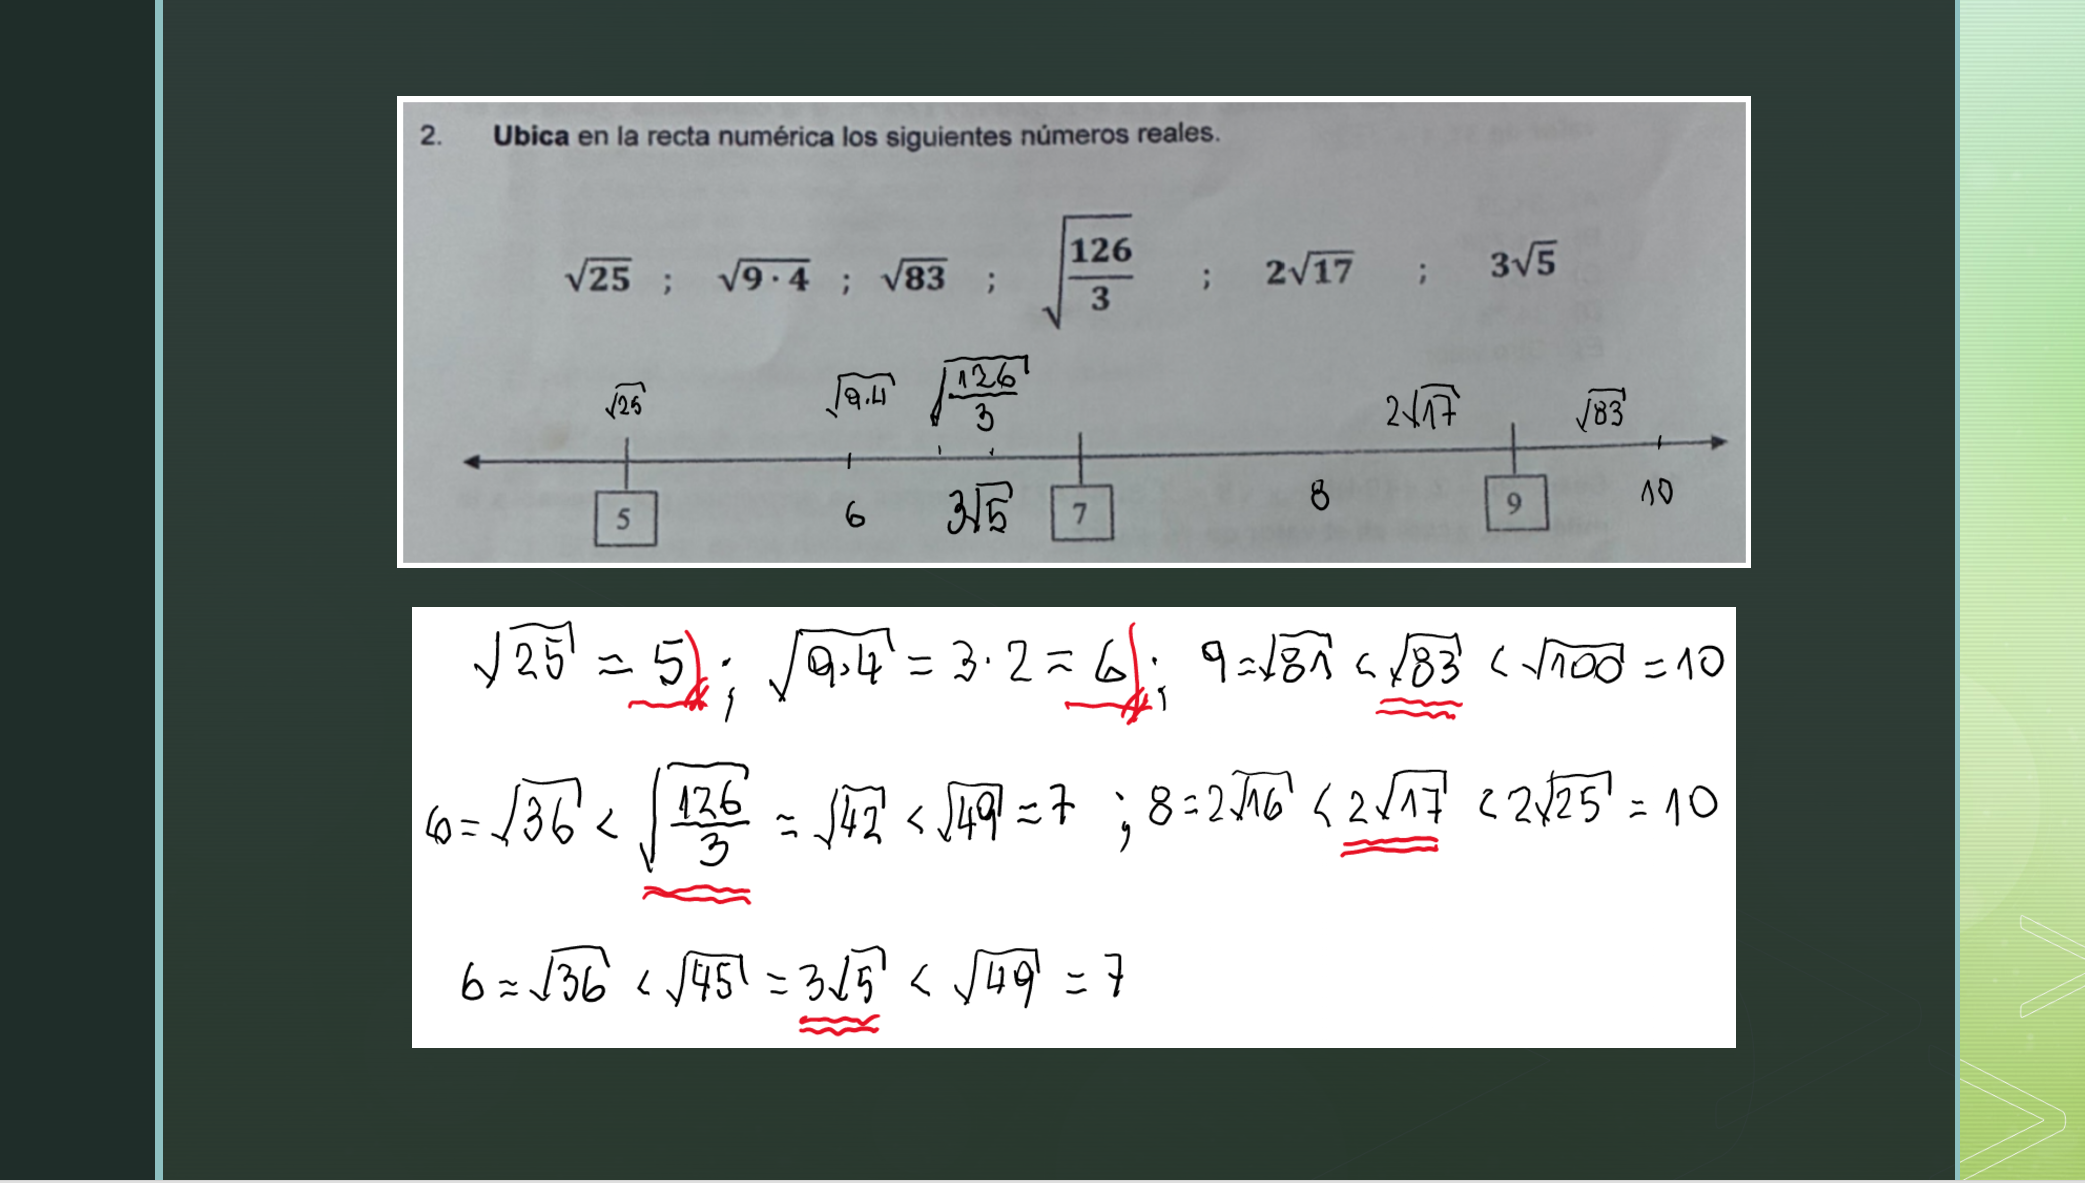 2. Ubica en la recta numérica los siguientes números reales.
√25 ; √9·4 ; √83 ; √126/3 ; 2√17 ; 3√5
√25 √9.4 √126/3 2√17 √83
5 6 3√5 7 8 9 10
√25 = 5 ; √9.4 = 3·2 = 6 ; 9=√81 < √83 < √100 = 10
6=√36 < √126/3 = √42 < √49 = 7 ; 8=2√16 < 2√17 < 2√25 = 10
6=√36 < √45 = 3√5 < √49 = 7